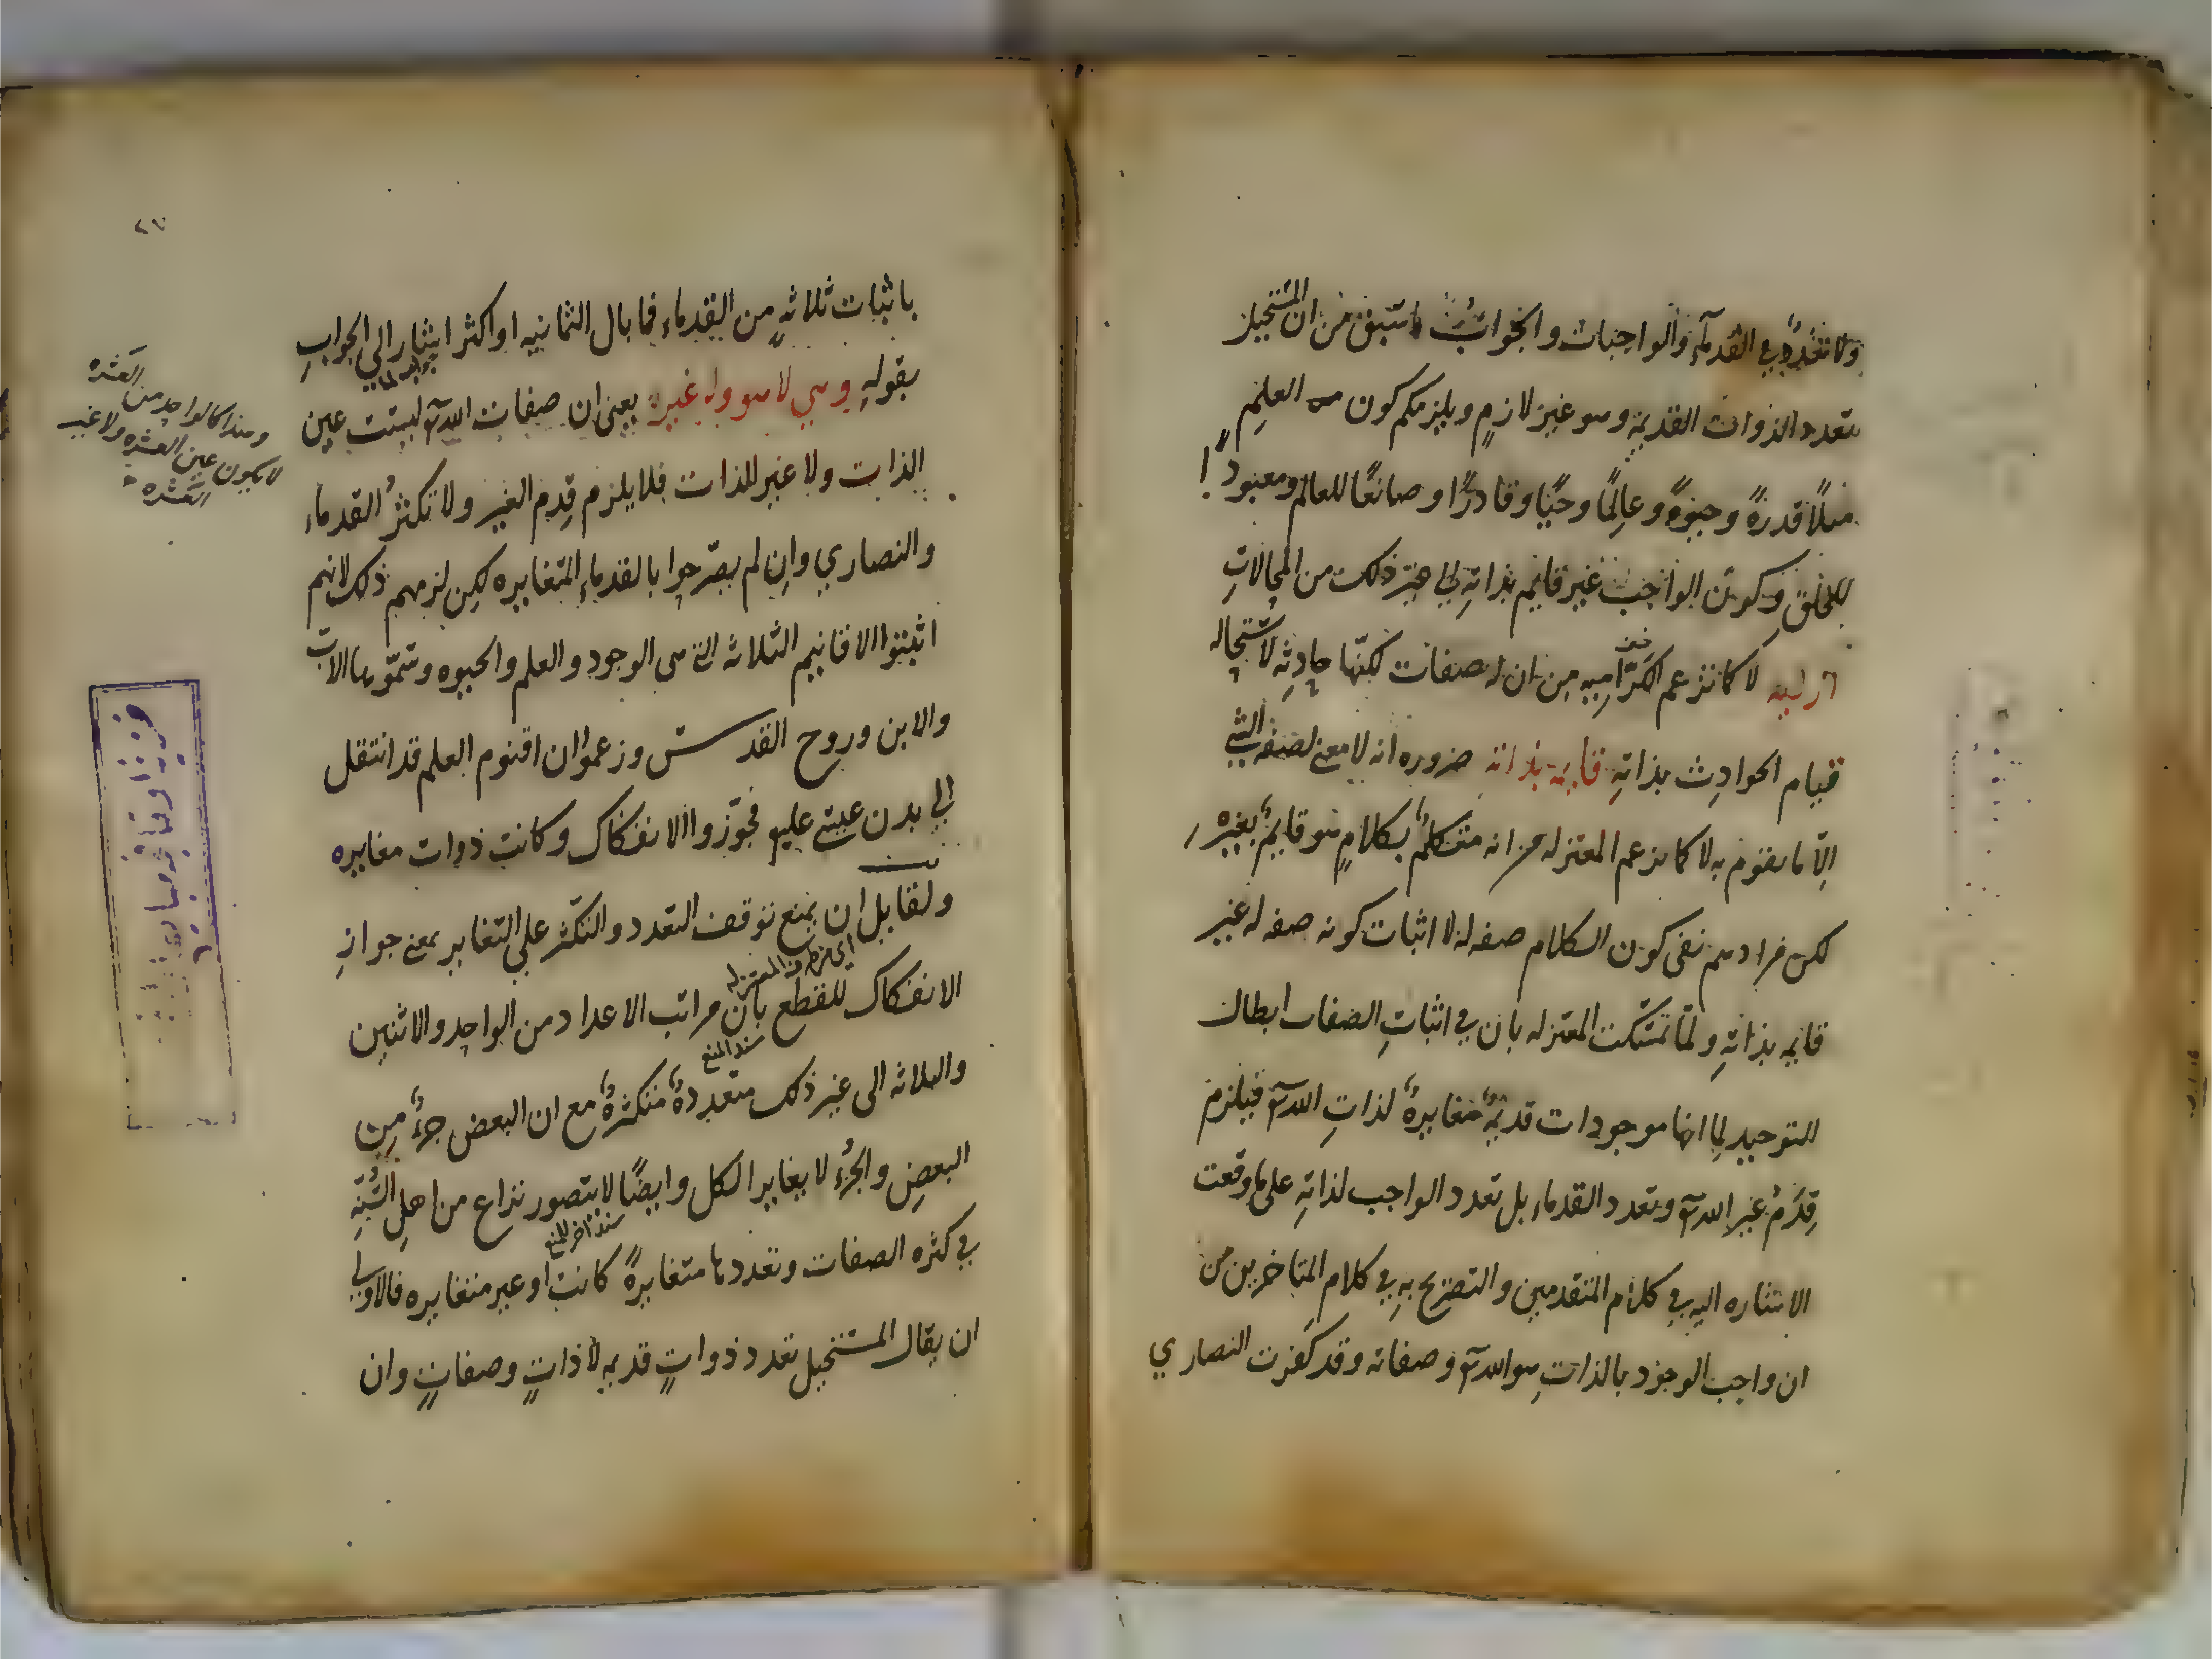 ولا تعدد في القدمآء والواجبات والجواب ما سبق من ان المستحيل
تعدد الذوات القديمة وهو غير لازم ويلزمكم كون العلم
مثلًا قدرةً وحيوةً وعالِمًا وحيًا وقادرًا وصانعًا للعالم ومعبودًا
للخلق وكون الواجب غير قايم بذاته الي غير ذلك من المحالاتِ
ازليه لا كما تزعم الكرّاميه من ان له صفات لكنّها حادثه لاستحاله
قيام الحوادِث بذاتهِ قايمه بذاته ضروره انه لا معنى لصفه الشي
الّا ما يقوم به لا كما يزعم المعتزله من انه متكلمٌ بكلامٍ هو قايمٌ بغيره
لكن مرادهم نفى كون الكلام صفه له لا اثبات كونه صفه له غير
قايمه بذاتهِ ولمّا تمسّكت المعتزله بان في اثباتِ الصفات ابطال
للتوحيد لِما انها موجودات قديمةٌ مغايرةٌ لذاتِ الله تعٓ فيلزم
قِدَمُ غير الله تعٓ وتعدد القدماء بل تعدد الواجب لذاتهِ على ما وقعت
الاشاره اليه في كلام المتقدمين والتصريح بهِ في كلام المتاخرين من
ان واجب الوجود بالذاتِ هو الله تعٓ وصفاته وقد كَفرت النصاري
٢٧
باثبات ثلاثهٍ من القدماء فما بال الثمانيه او اكثر اشار الي الجوابِ
بقولهِ وهي لا هو ولا غيره يعنى ان صفات الله تعٓ ليست عين
الذات ولا غير الذات فلا يلزم قِدم الغير ولا تكثرُ القدماء
والنصاري وان لم يصّرحوا بالقدماءِ المتغايره لكن لزمهم ذلك لانهم
اثبتوا الاقانيم الثلاثه التي هى الوجود والعلم والحيوه وسَمّوها الاب
والابن وروح القدس وزعموا ان اقنوم العلم قد انتقل
الي بدن عيسى عليه فجوّزوا الانفكاك وكانت ذوات مغايره
ولقايل ان يمنع توقف التعدد والتكثر علي التغاير بمعنى جوازِ
اى من طرف المعتزله
الانفكاك للقطع بانّ مراتب الاعداد من الواحد والاثنين
سند المنع
والثلاثه الى غير ذلك متعددةٌ متكثرةٌ مع ان البعض جزءٌ من
البعضِ والجزُء لا يغاير الكل وايضًا لا يتصور نزاع من اهلِ السُّنةِ
سند اخر للمنع
في كثره الصفات وتعددها متغايرةً كانت او غير متغايره فالاولي
ان يقال المستحيل تعدد ذواتٍ قديمه لا ذاتٍ وصفاتٍ وان
وهذا كالواحد من العشره
لا يكون عين العشره ولا غير
العشره